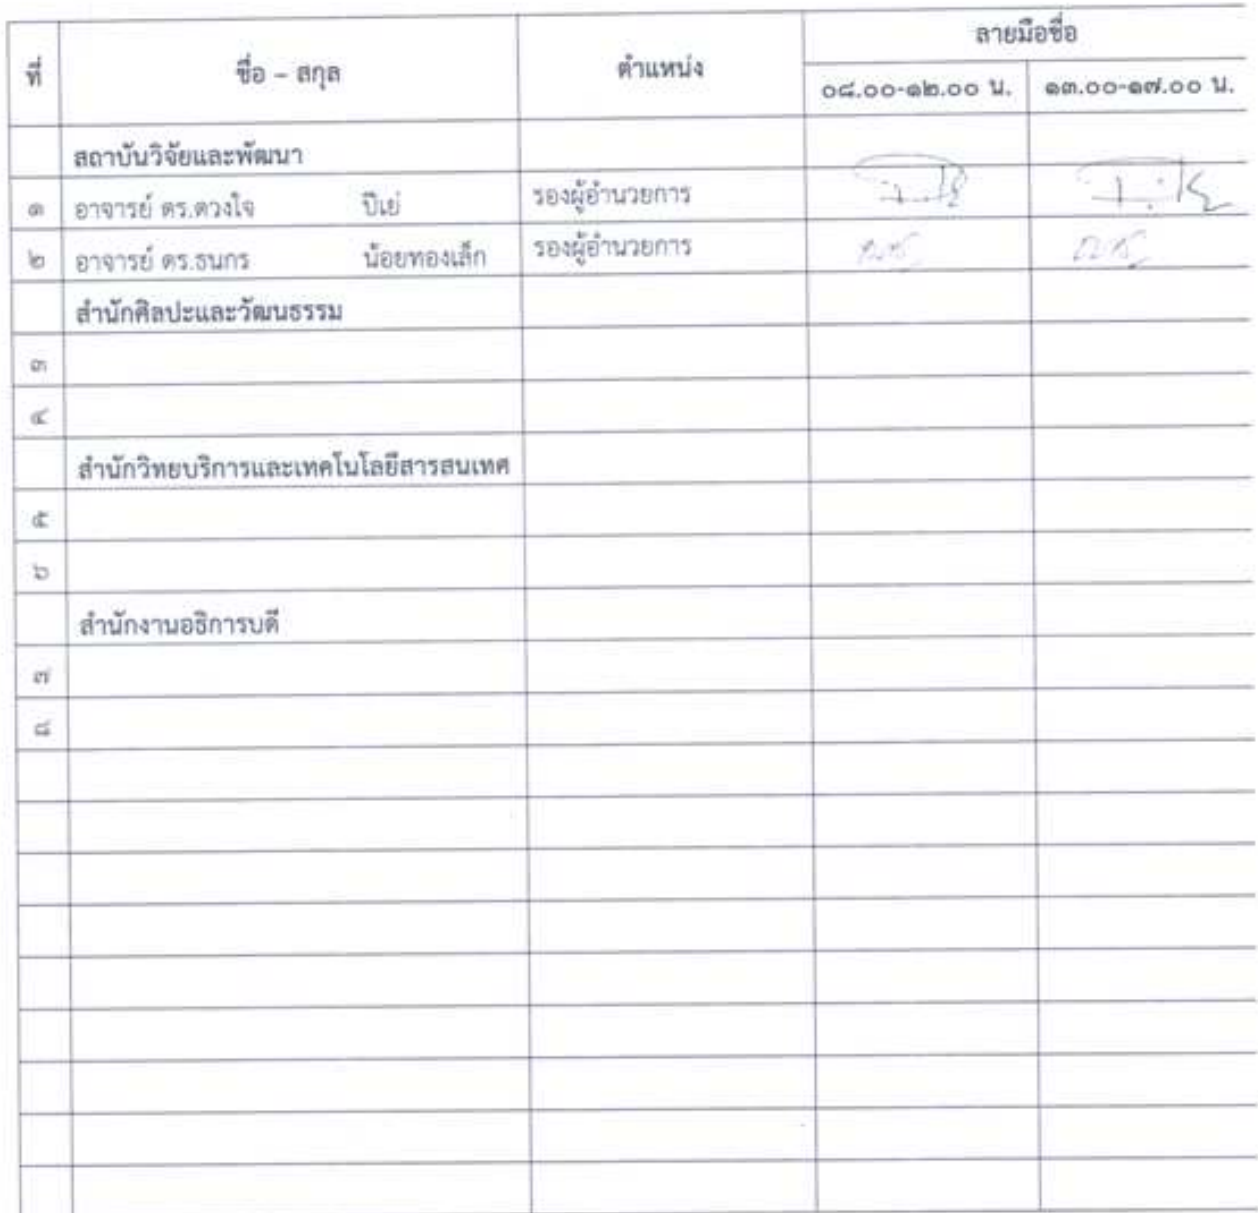 ที่ ชื่อ – สกุล ตำแหน่ง ลายมือชื่อ
๐๘.๐๐-๑๒.๐๐ น. ๑๓.๐๐-๑๗.๐๐ น.
สถาบันวิจัยและพัฒนา
๑ อาจารย์ ดร.ดวงใจ ปีเย่ รองผู้อำนวยการ
๒ อาจารย์ ดร.ธนกร น้อยทองเล็ก รองผู้อำนวยการ
สำนักศิลปะและวัฒนธรรม
๓
๔
สำนักวิทยบริการและเทคโนโลยีสารสนเทศ
๕
๖
สำนักงานอธิการบดี
๗
๘